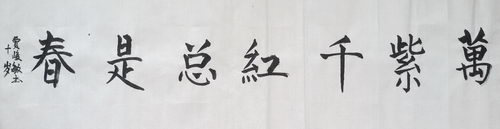 萬紫千紅总是春
十岁